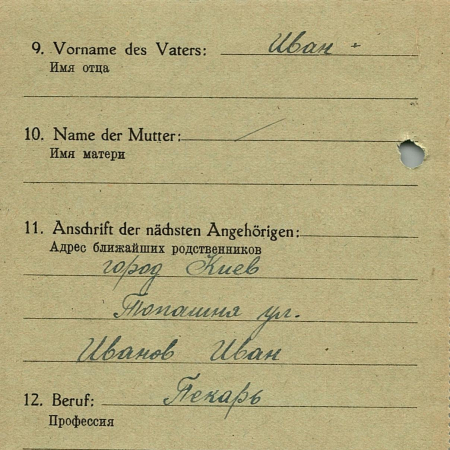 9. Vorname des Vaters: Иван +
Имя отца
10. Name der Mutter: —
Имя матери
11. Anschrift der nächsten Angehörigen:
Адрес ближайших родственников
город Киев
Топашня ул.
Иванов Иван
12. Beruf: Пекарь
Профессия